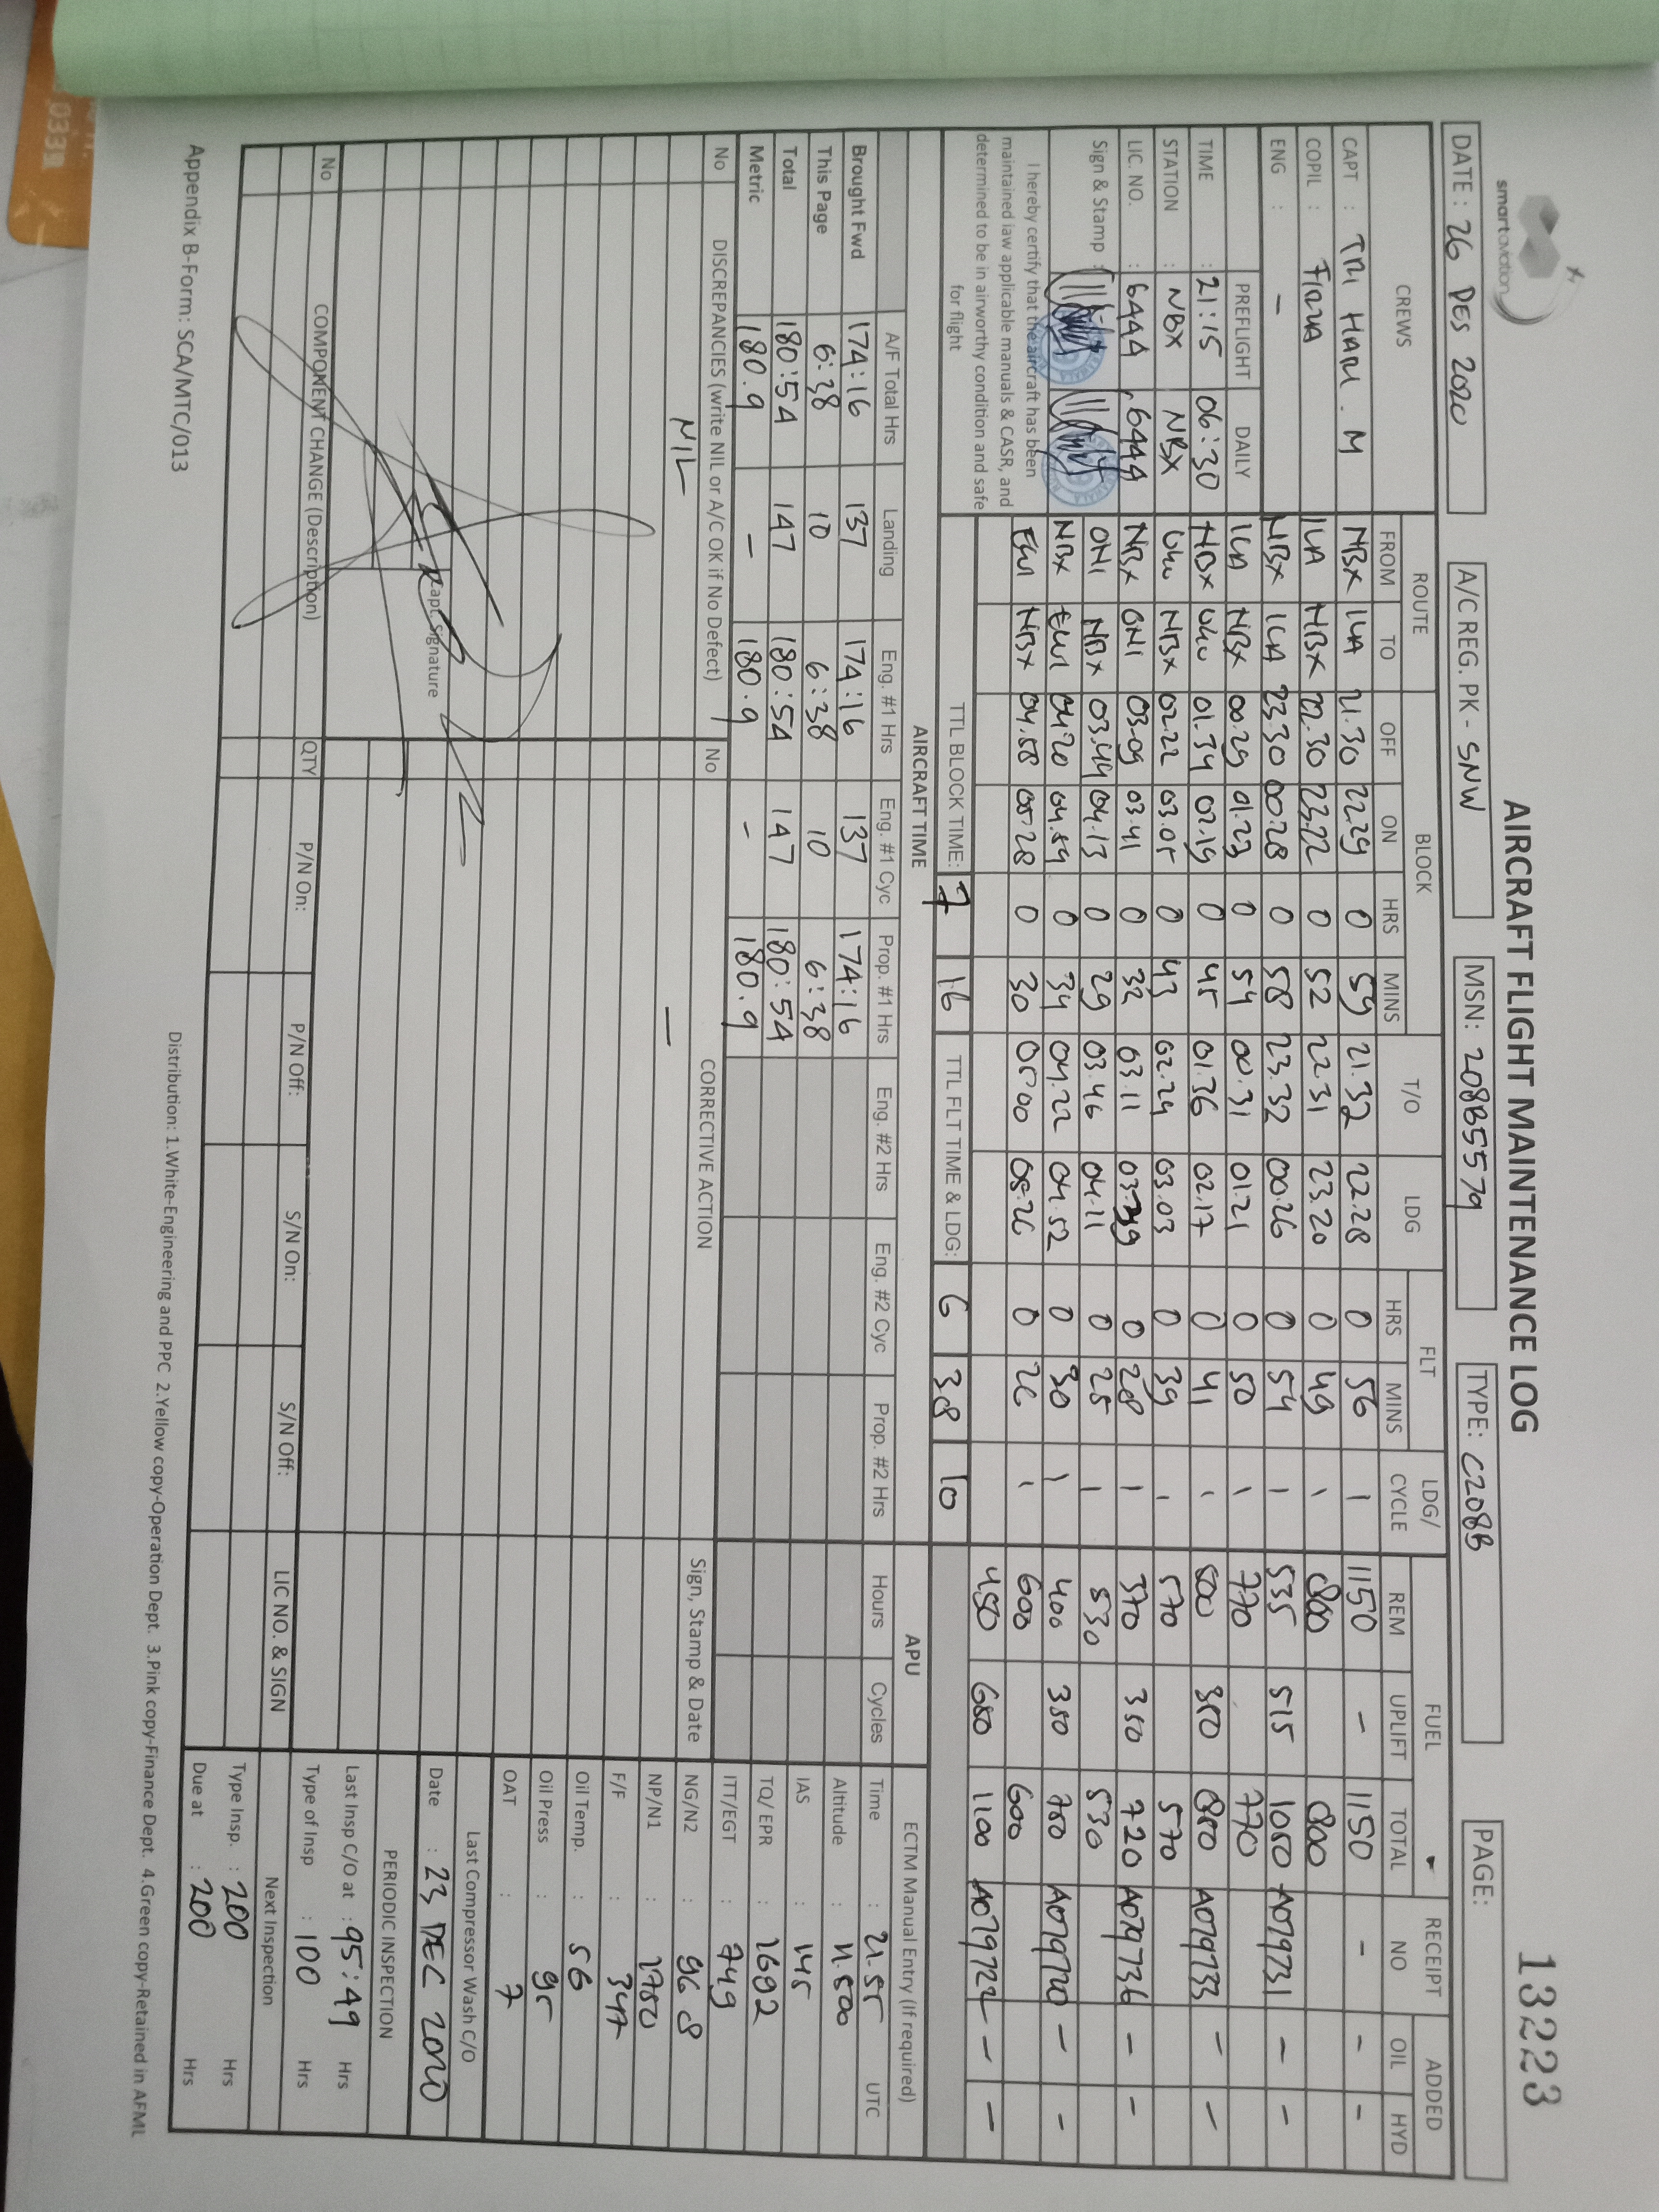 smart aviation
AIRCRAFT FLIGHT MAINTENANCE LOG
13223
DATE : 26 DES 2020
A/C REG. PK - SNW
MSN: 208B5579
TYPE: C208B
PAGE:
CREWS
ROUTE
BLOCK
T/O
LDG
FLT
LDG/
CYCLE
FUEL
RECEIPT
NO
ADDED
FROM
TO
OFF
ON
HRS
MINS
HRS
MINS
REM
UPLIFT
TOTAL
OIL
HYD
CAPT : TRI HARI . M
COPIL :
ENG : -
PREFLIGHT
DAILY
TIME : 21:15 06:30
STATION : NBX NBX
LIC. NO. : 6444 6444
Sign & Stamp :
I hereby certify that the aircraft has been
maintained iaw applicable manuals & CASR, and
determined to be in airworthy condition and safe
for flight
NBX ILA 21.30 22.29 0 59 21.32 22.28 0 56 1 1150 - 1150 - - -
ILA NBX 22.30 23.22 0 52 22.31 23.20 0 49 1 800 800
NBX ILA 23.30 00.28 0 58 23.32 00.26 0 54 1 535 515 1050 A079731 - -
ILA NBX 00.29 01.23 0 54 00.31 01.21 0 50 1 770 770
NBX 01.34 02.19 0 45 01.36 02.17 0 41 1 A079733 - -
NBX 02.22 03.05 0 43 02.24 03.03 0 39 1 570 570
NBX ONI 03.09 03.41 0 32 03.11 03.39 0 28 1 370 350 720 A079736 - -
ONI NBX 03.44 04.13 0 29 03.46 04.11 0 25 1 530 530
NBX EWI 04.20 0 34 04.22 04.52 0 30 1 400 350 750 - -
EWI NBX 04.58 05.28 0 30 05.00 05.26 0 26 1 600 600
450 650 1100 - -
TTL BLOCK TIME: 7 16
TTL FLT TIME & LDG: 6 38 10
AIRCRAFT TIME
APU
ECTM Manual Entry (If required)
A/F Total Hrs
Landing
Eng. #1 Hrs
Eng. #1 Cyc
Prop. #1 Hrs
Eng. #2 Hrs
Eng. #2 Cyc
Prop. #2 Hrs
Hours
Cycles
Brought Fwd 174:16 137 174:16 137 174:16
This Page 6:38 10 6:38 10 6:38
Total 180:54 147 180:54 147 180:54
Metric 180.9 - 180.9 - 180.9
Time : 21.55 UTC
Altitude : 11.500
IAS : 145
TQ/ EPR : 1692
ITT/EGT : 749
NG/N2 : 96.8
NP/N1 : 1750
F/F : 347
Oil Temp. : 56
Oil Press : 95
OAT : 7
No
DISCREPANCIES (write NIL or A/C OK if No Defect)
No
CORRECTIVE ACTION
Sign, Stamp & Date
NIL
-
Capt. Signature
Last Compressor Wash C/O
Date : 23 DEC 2020
PERIODIC INSPECTION
Last Insp C/O at : 95:49 Hrs
Type of Insp : 100 Hrs
Next Inspection
Type Insp. : 200 Hrs
Due at : 200 Hrs
No
COMPONENT CHANGE (Description)
QTY
P/N On:
P/N Off:
S/N On:
S/N Off:
LIC NO. & SIGN
Appendix B-Form: SCA/MTC/013
Distribution: 1.White-Engineering and PPC 2.Yellow copy-Operation Dept. 3.Pink copy-Finance Dept. 4.Green copy-Retained in AFML